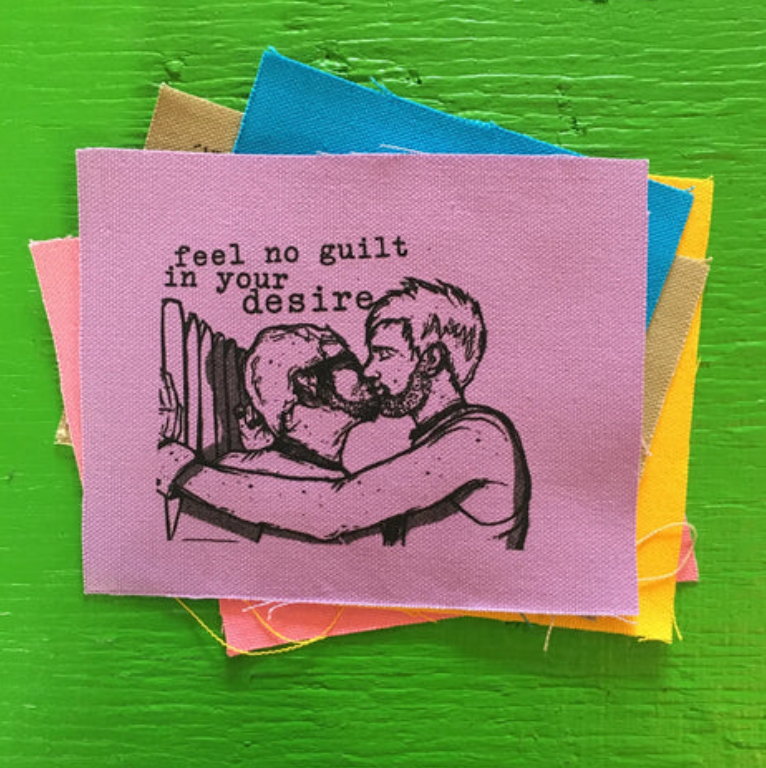 feel no guilt
in your
desire